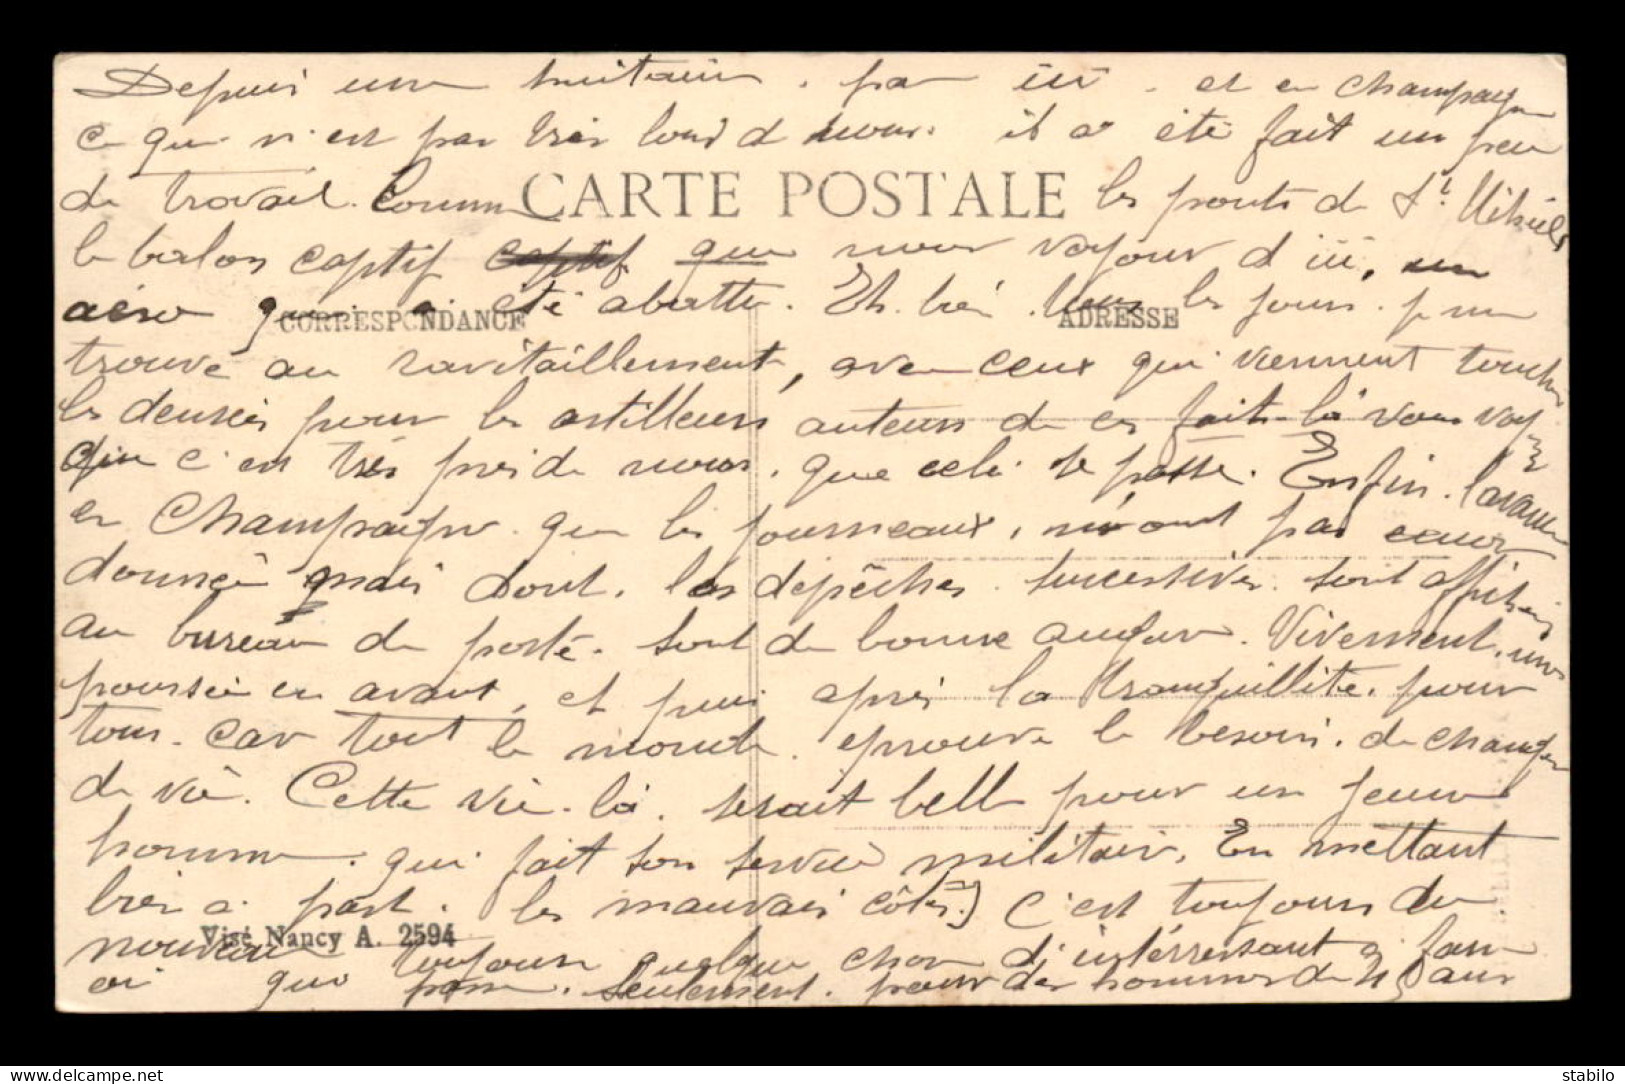 Depuis une huitaine. par ici. et en Champagne
ce qui n'est pas très loin d nous. il a été fait un peu
de travail. Comme CARTE POSTALE les ponts de St. Mihiel,
le balon captif captif que nous voyons d'ici. un
aéro qui a été abattu. Eh bien tous les jours. je me
CORRESPONDANCE ADRESSE
trouve au ravitaillement, avec ceux qui viennent toucher
les denrées pour les artilleurs, auteurs de ces faits-là vous voyez
que c'est très près de nous. que cela se passe. Enfin. l'avance
en Champaigne que les journeaux, n'ont pas encor
donnée mais dont. les dépêches. sucessives. sont affichées
au bureau de poste. sont de bonne augure. Vivement. une
poussée en avant, et puis après la tranquillité. pour
tous. Car tout le monde. éprouve le besoin. de changer
de vie. Cette vie-là. serait belle pour un jeune
homme. qui fait son service militaire. En mettant
bien a part. les mauvais côtés.) C'est toujours du
nouveau toujours quelque chose d'intérressant a faire
Visé Nancy A. 2594
ou qui passe. Seulement. pour des hommes de 45 ans
delcampe.net
stabilo